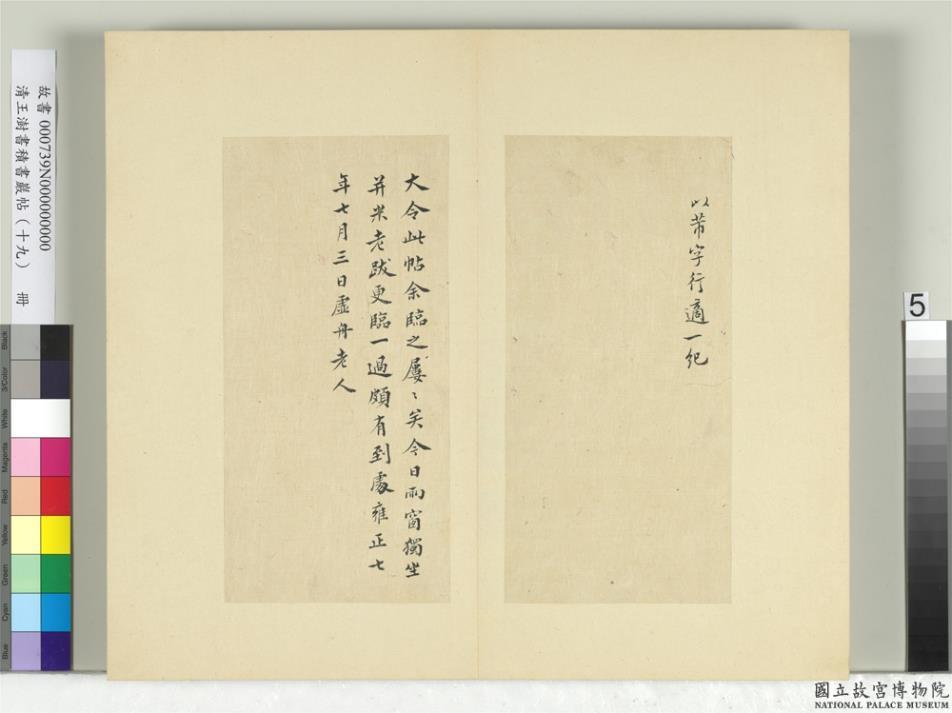 以芾字行適一紀
大令此帖余臨之屢〻矣今日雨窗獨坐
并米老跋更臨一過頗有到處雍正七
年七月三日虛舟老人
故書000739N000000000
清王澍書積書巖帖(十九) 冊
Black
3/Color
White
Magenta
Red
Yellow
Green
Cyan
Blue
5
國立故宮博物院
NATIONAL PALACE MUSEUM